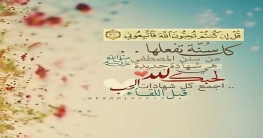 قل إن كنتم تحبون الله فاتبعوني
كل سنة تفعلها..
من سنن المصطفى ﷺ
شهادة جديدة
لحبك
.. اجمع كل شهادات الحب
قبل اللقاء